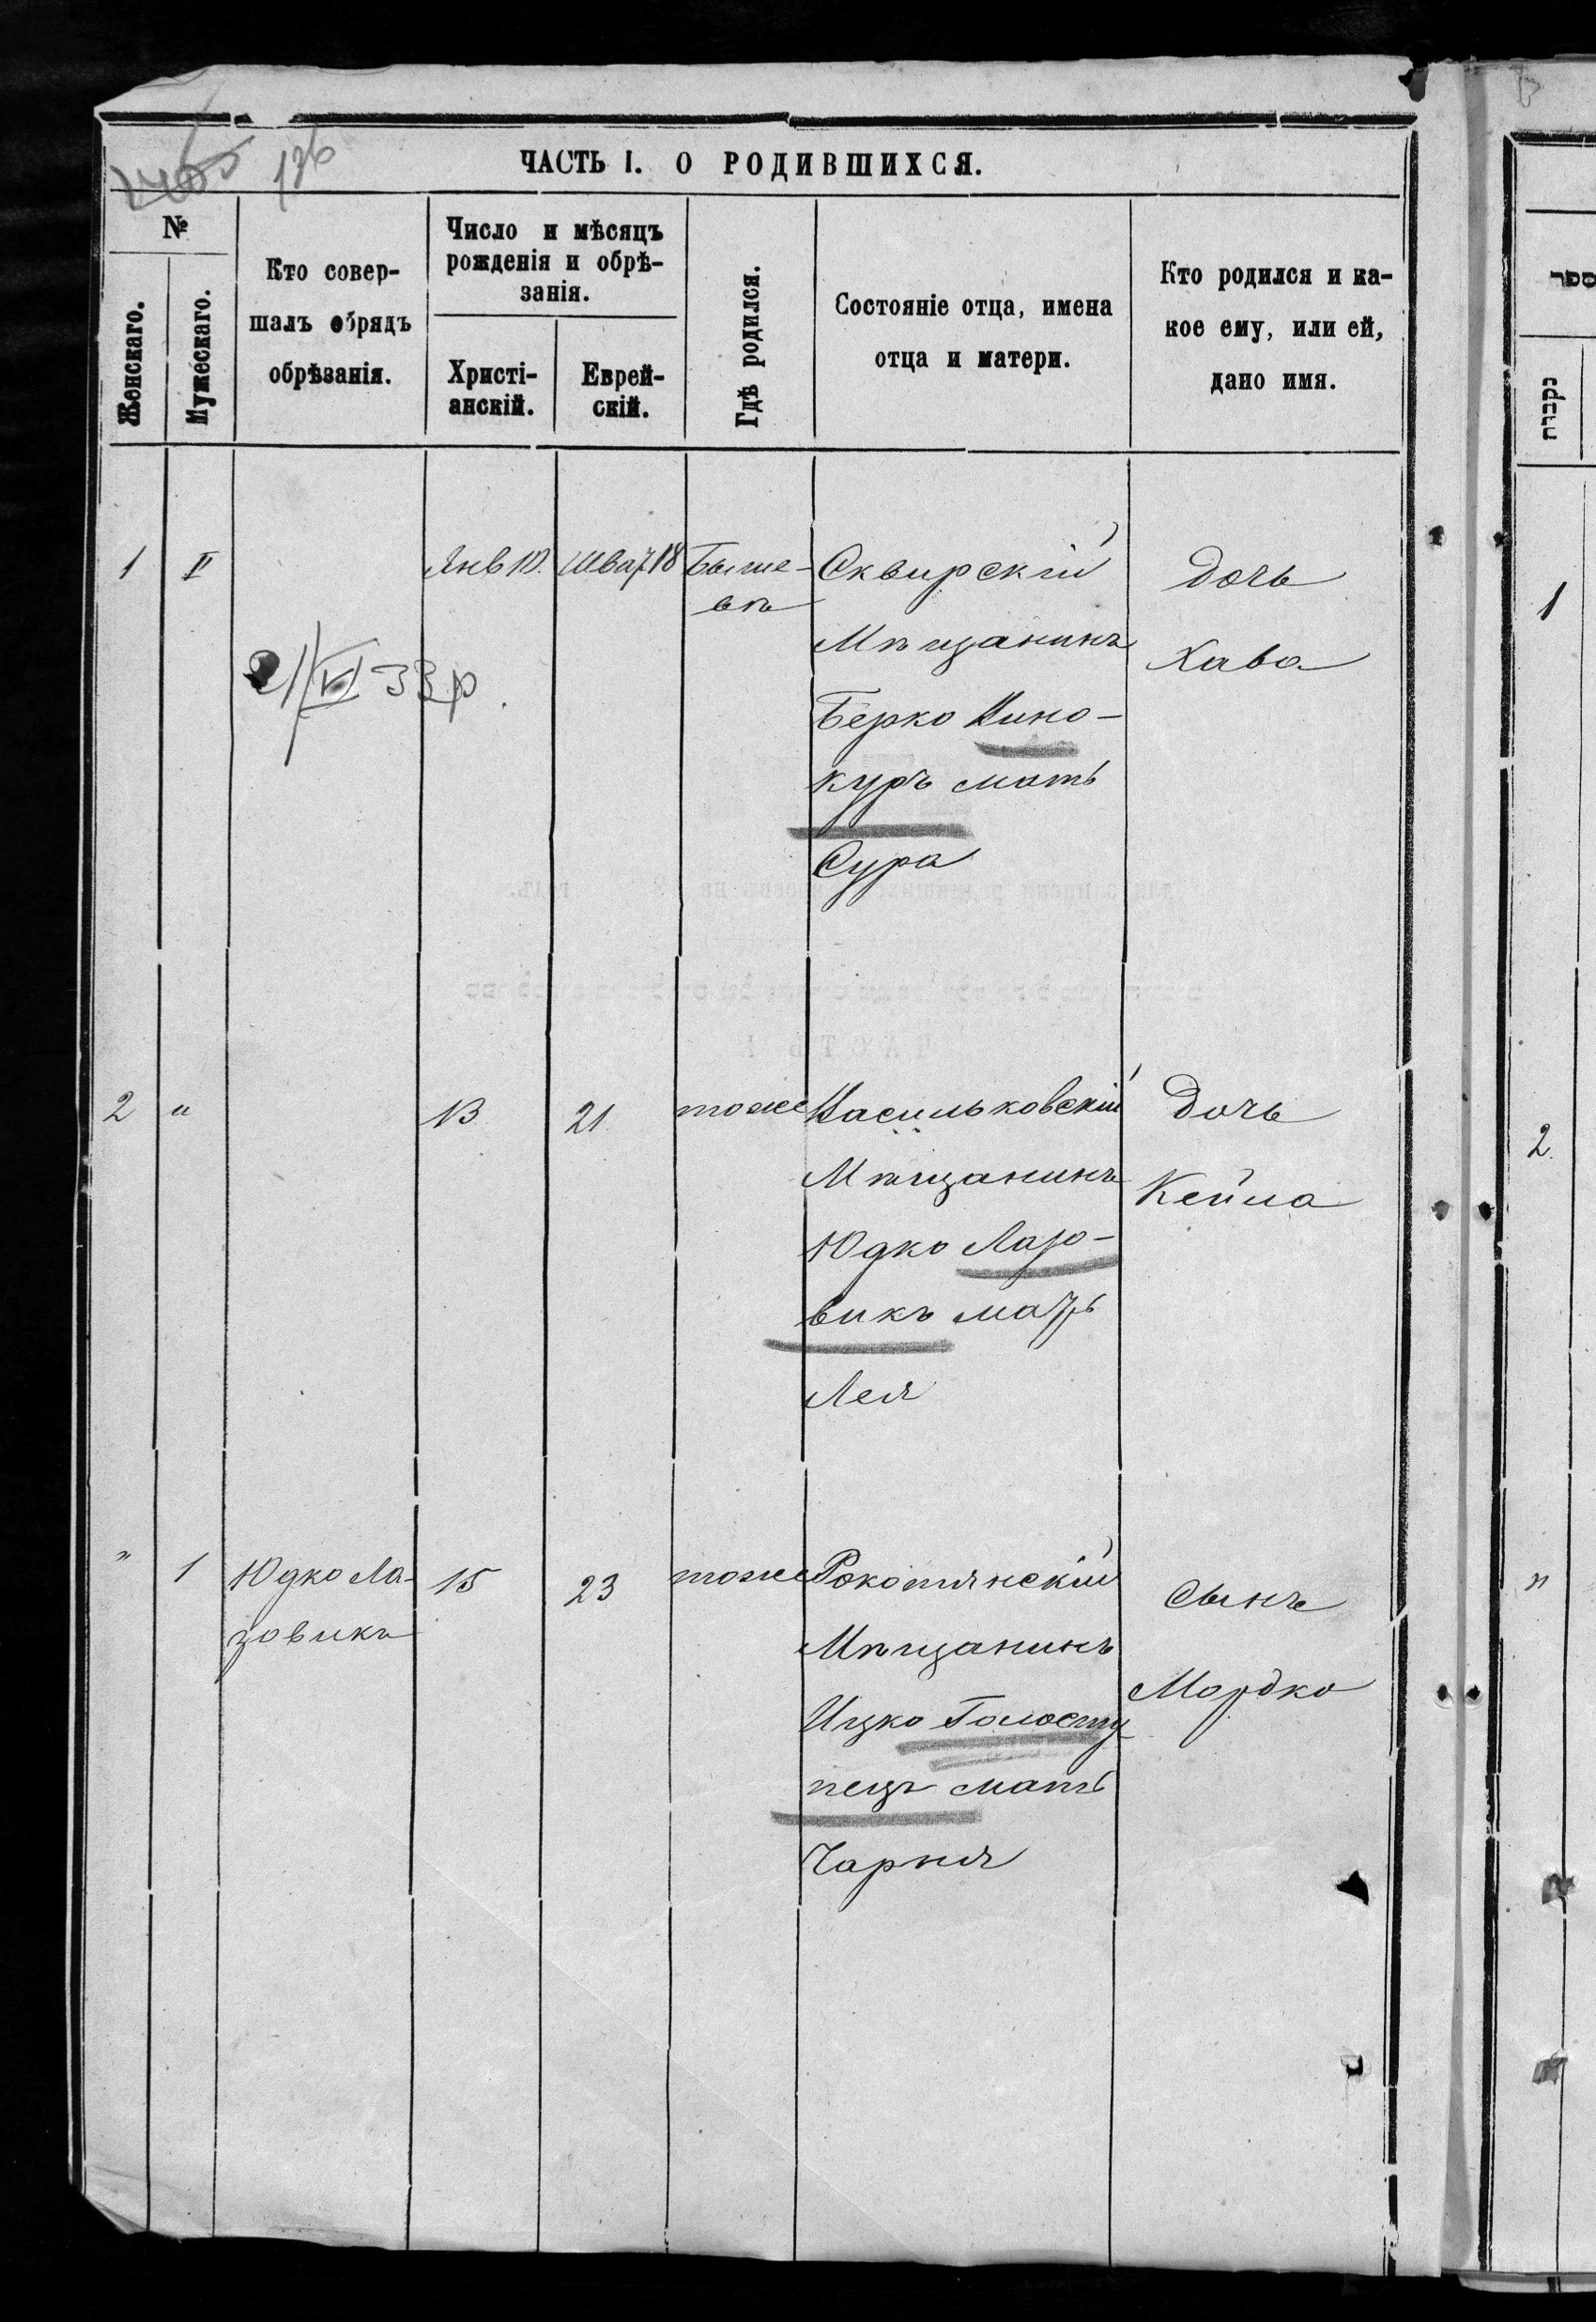 126
ЧАСТЬ I. О РОДИВШИХСЯ.
№
Женскаго.
Мужескаго.
Кто совер-
шалъ обрядъ
обрѣзанія.
Число и мѣсяцъ
рожденія и обрѣ-
занія.
Христі-
анскій.
Еврей-
скій.
Гдѣ родился.
Состояніе отца, имена
отца и матери.
Кто родился и ка-
кое ему, или ей,
дано имя.
1 Янв 10. Шват 18 Быше-
вѣ
Сквирскій
Мѣщанинъ
Берко Вино-
куръ мать
Сура
дочь
Хава
21/VI 33 р.
2 " 13 21. тоже
Васильковскій
Мѣщанинъ
Юдко Лазо-
викъ мать
Лея
дочь
Кейла
" 1 Юдко Ла-
зовикъ
15 23 тоже
Рокотянскій
Мѣщанинъ
Ицко Голосту-
пецъ мать
Чарня
Сынъ
Мордко
ספר
נקבות
1
2.
"